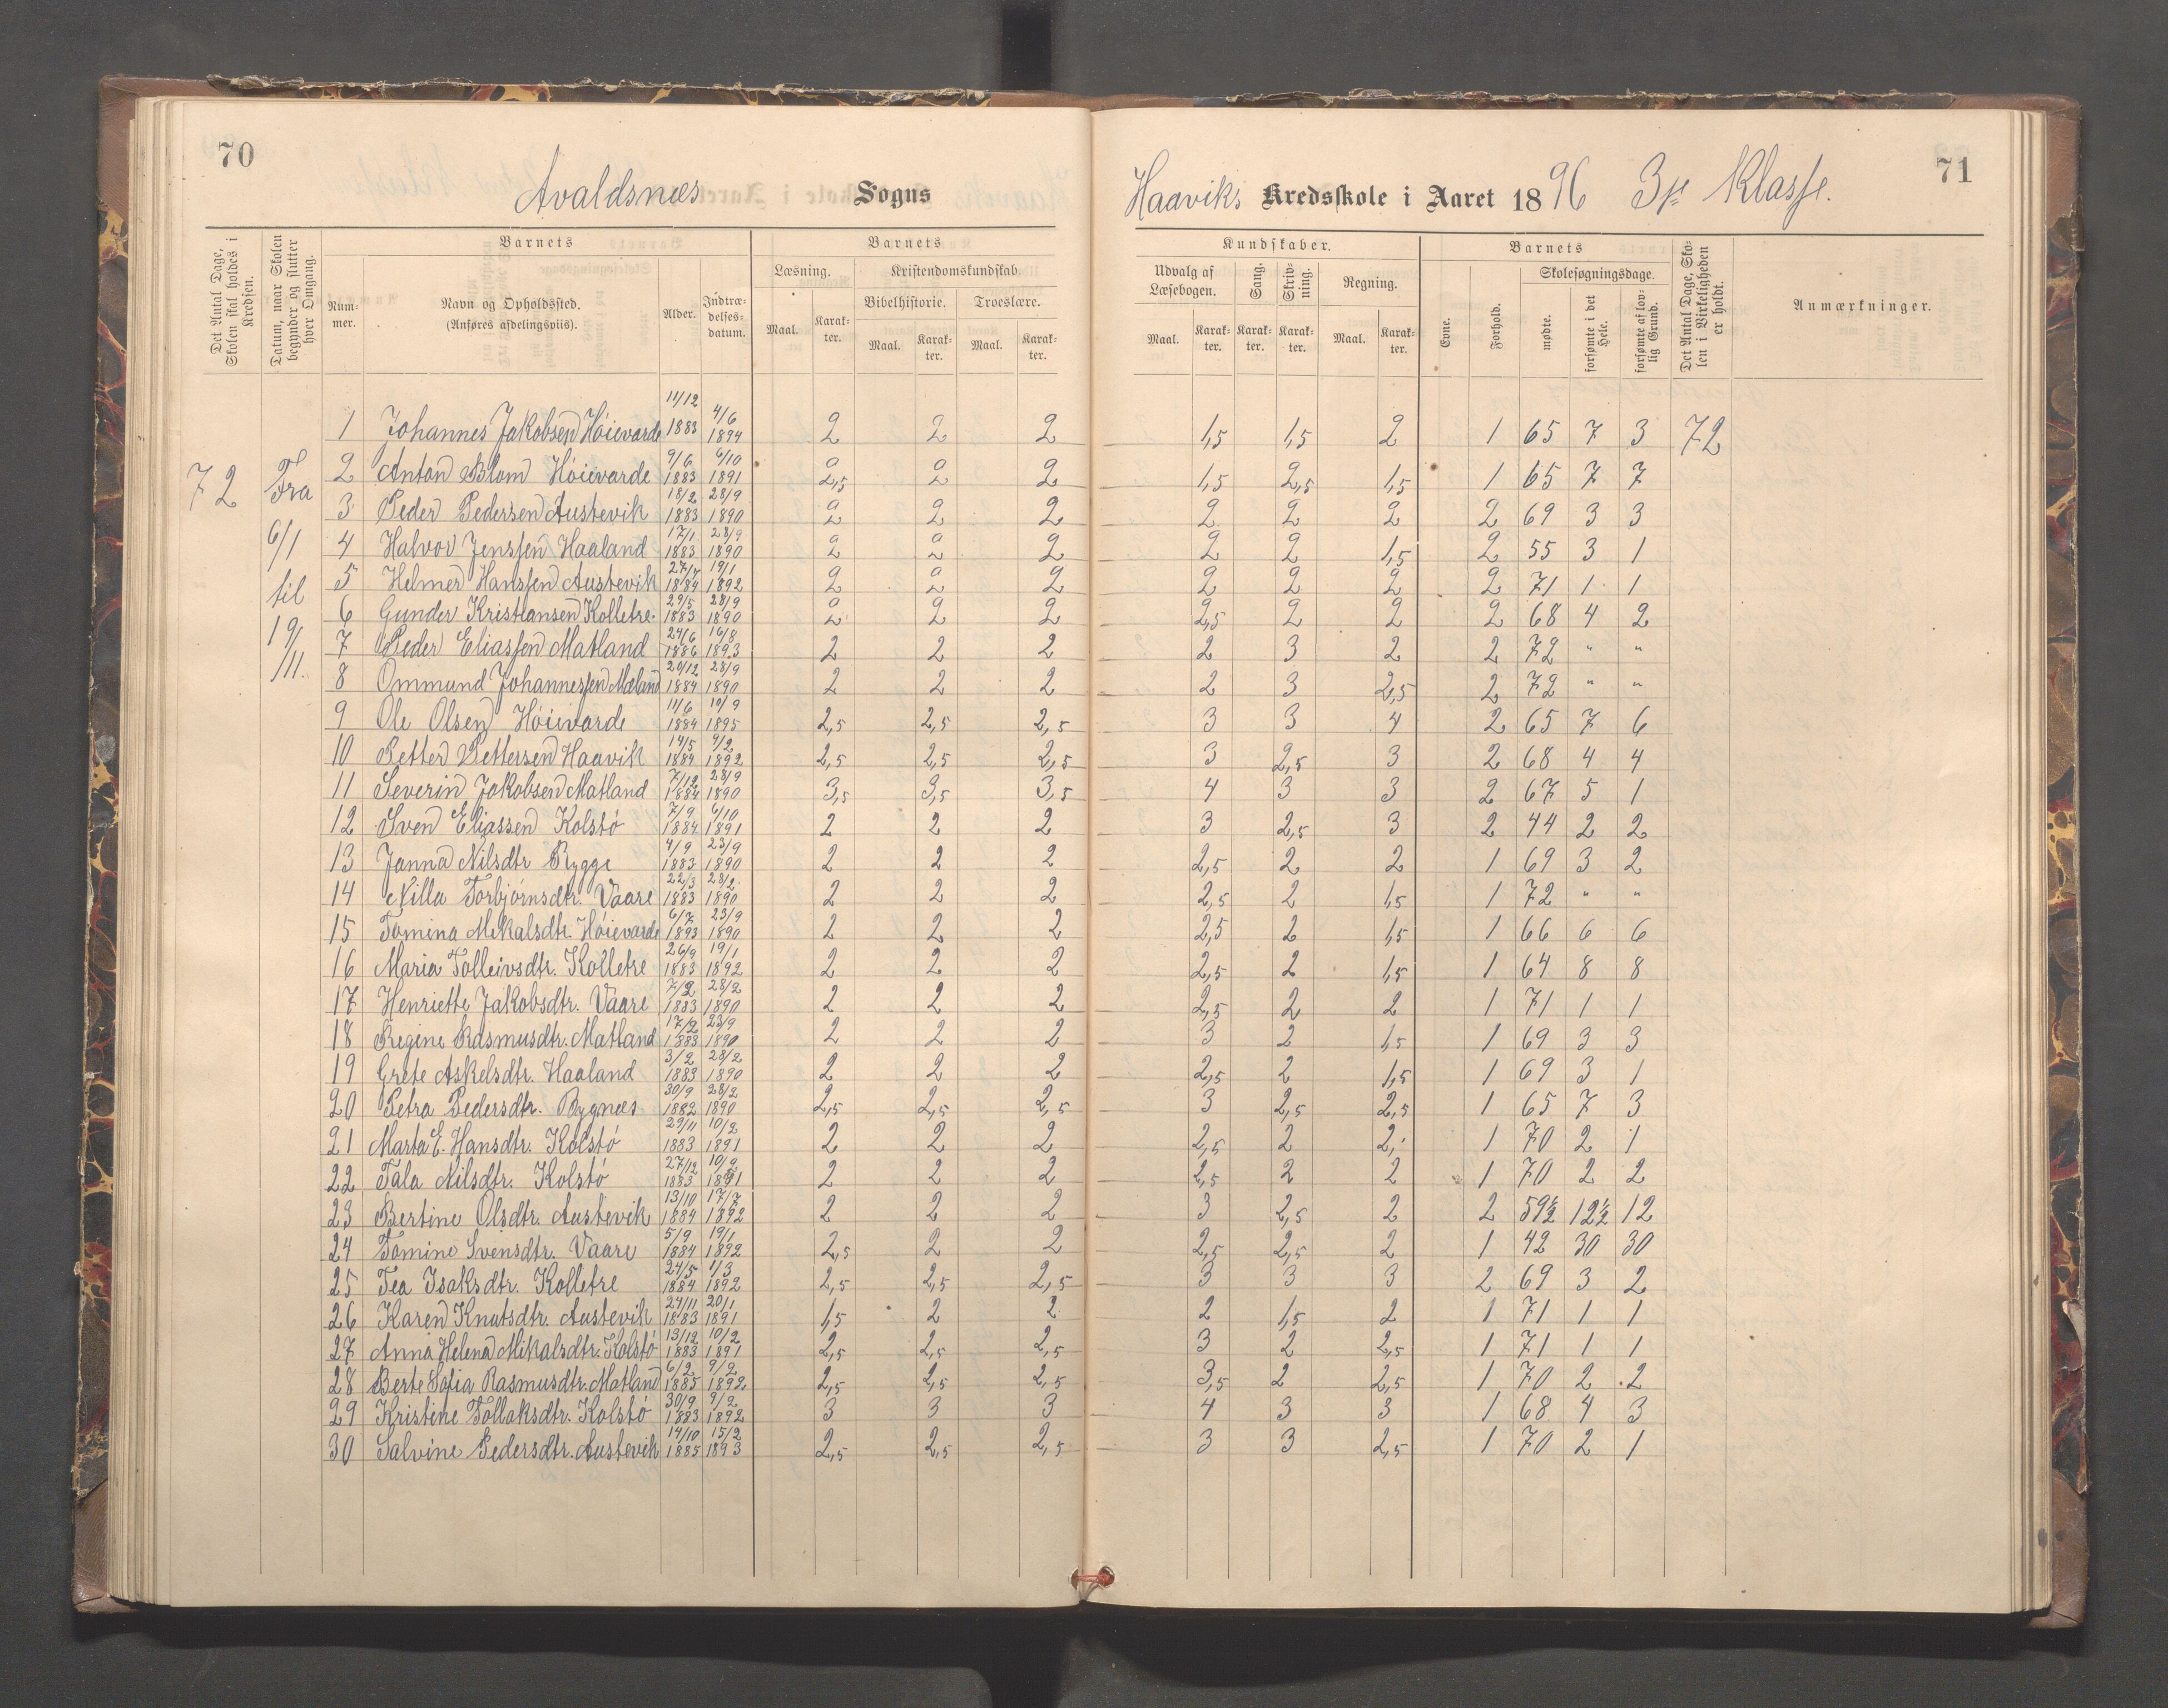 70
Avaldsnes Sogns
Haaviks Kredsskole i Aaret 1896 3je Klasse.
71
Det Antal Dage, Skolen skal holdes i Kredsen.
Datum, naar Skolen begynder og slutter hver Omgang.
Barnets
Nummer.
Navn og Opholdssted. (Anføres afdelingsviis).
Alder.
Indtrædelsesdatum.
Barnets
Læsning.
Kristendomskundskab
Bibelhistorie.
Troeslære.
Maal. Karakter. Maal. Karakter. Maal. Karakter.
Kundskaber.
Udvalg af Læsebogen.
Sang.
Skrivning.
Regning.
Maal. Karakter. Karakter. Karakter. Maal. Karakter.
Barnets
Evne.
Forhold.
Skolesøgningsdage.
mødte.
forsømte i det Hele.
forsømte af lovlig Grund.
Det Antal Dage, Skolen i Virkeligheden er holdt.
Anmærkninger.
72 Fra 6/1 til 19/11.
1 Johannes Jakobsen Höievarde 11/12 1883 4/6 1894 2 2 2 1,5 1,5 2 1 65 7 3 72
2 Anton Blom Höievarde 9/6 1883 6/10 1891 2,5 2 2 1,5 2,5 1,5 1 65 7 7
3 Peder Pedersen Austevik 18/2 1883 28/9 1890 2 2 2 2 2 2 2 69 3 3
4 Halvor Jenssen Haaland 17/1 1883 28/9 1890 2 2 2 2 2 1,5 2 55 3 1
5 Helmer Hanssen Austevik 27/7 1884 19/1 1892 2 2 2 2 2 2 2 71 1 1
6 Gunder Kristiansen Kolletre. 29/5 1883 28/9 1890 2 2 2 2,5 2 2 2 68 4 2
7 Peder Eliassen Matland 24/6 1886 16/8 1893 2 2 2 2 3 2 2 72 " "
8 Ommund Johannessen Mæland 20/12 1884 28/9 1890 2 2 2 2 3 2,5 2 72 " "
9 Ole Olsen Höievarde 11/6 1884 10/9 1895 2,5 2,5 2,5 3 3 4 2 65 7 6
10 Petter Pettersen Haavik 14/5 1884 9/2 1892 2,5 2,5 2,5 3 2,5 3 2 68 4 4
11 Severin Jakobsen Matland 7/12 1884 28/9 1890 3,5 3,5 3,5 4 3 3 2 67 5 1
12 Sven Eliassen Kolstö 7/9 1884 6/10 1891 2 2 2 3 2,5 3 2 44 2 2
13 Janna Nilsdtr Bygge 4/9 1883 23/9 1890 2 2 2 2,5 2 2 1 69 3 2
14 Nilla Torbjörnsdtr. Vaare 22/3 1883 28/2 1890 2 2 2 2,5 2 1,5 1 72 " "
15 Tomina Mekalsdtr. Höievarde 6/7 1893 23/9 1890 2 2 2 2,5 2 1,5 1 66 6 6
16 Maria Tolleivsdtr. Kolletre 26/9 1883 19/1 1892 2 2 2 2,5 2 1,5 1 64 8 8
17 Henriette Jakobsdtr. Vaare 7/2 1883 28/2 1890 2 2 2 2,5 2 2 1 71 1 1
18 Regine Rasmusdtr. Matland 17/2 1883 23/9 1890 2 2 2 3 2 1,5 1 69 3 3
19 Grete Askelsdtr. Haaland 3/2 1883 28/2 1890 2 2 2 2,5 2 1,5 1 69 3 1
20 Petra Pedersdtr. Bygnes 30/9 1882 28/2 1890 2,5 2,5 2,5 3 2,5 2,5 1 65 7 3
21 Marta E. Hansdtr. Kolstö 29/11 1883 10/2 1891 2 2 2 2,5 2 2, 1 70 2 1
22 Tala Nilsdtr. Kolstö 27/12 1883 10/2 1891 2 2 2 2,5 2 2 1 70 2 2
23 Bertine Olsdtr. Austevik 13/10 1884 17/7 1892 2 2 2 3 2,5 2 2 59½ 12½ 12
24 Tomine Svensdtr. Vaare 5/9 1884 19/1 1892 2,5 2 2 2,5 2,5 2 1 42 30 30
25 Tea Isaksdtr. Kolletre 24/5 1884 1/3 1892 2,5 2,5 2,5 3 3 3 2 69 3 2
26 Karen Knutsdtr. Austevik 24/11 1883 20/1 1891 1,5 2 2 2 1,5 2 1 71 1 1
27 Anna Helena Mikalsdtr. Kolstö 13/12 1883 10/2 1891 2,5 2,5 2,5 3 2 2,5 1 71 1 1
28 Berte Sofia Rasmusdtr. Matland 6/2 1885 9/2 1892 2,5 2,5 2,5 3,5 2 2,5 1 70 2 2
29 Kristine Tollaksdtr. Kolstö 30/9 1883 9/2 1892 3 3 3 4 3 3 1 68 4 3
30 Salvine Pedersdtr. Austevik 14/10 1885 15/2 1893 2,5 2,5 2,5 3 3 2,5 1 70 2 1